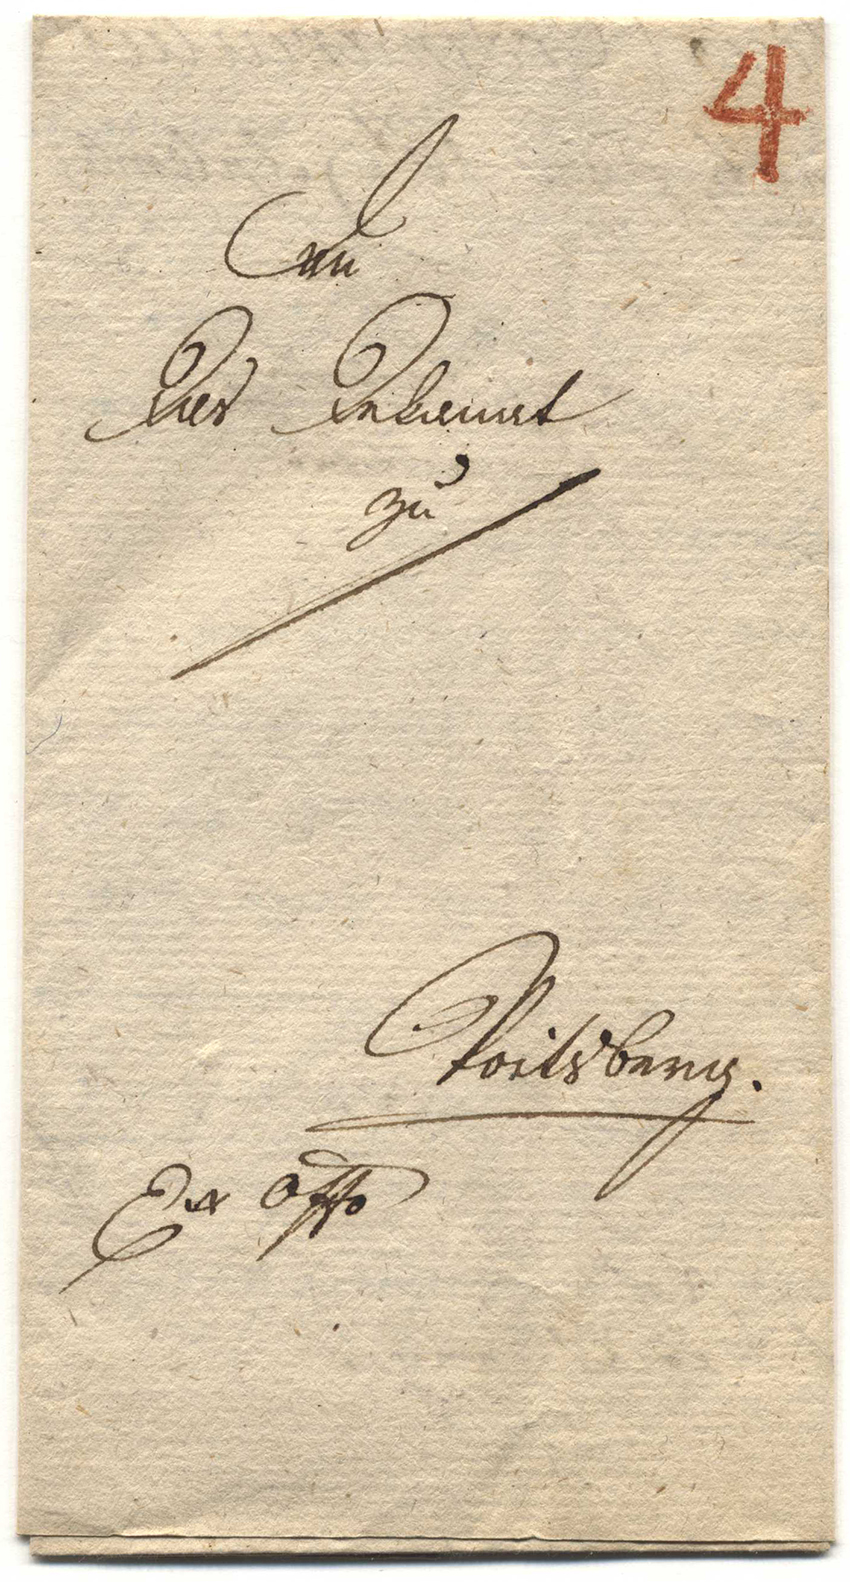 4
An
Das Dekanat
zu
Voitsberg.
Ex offo